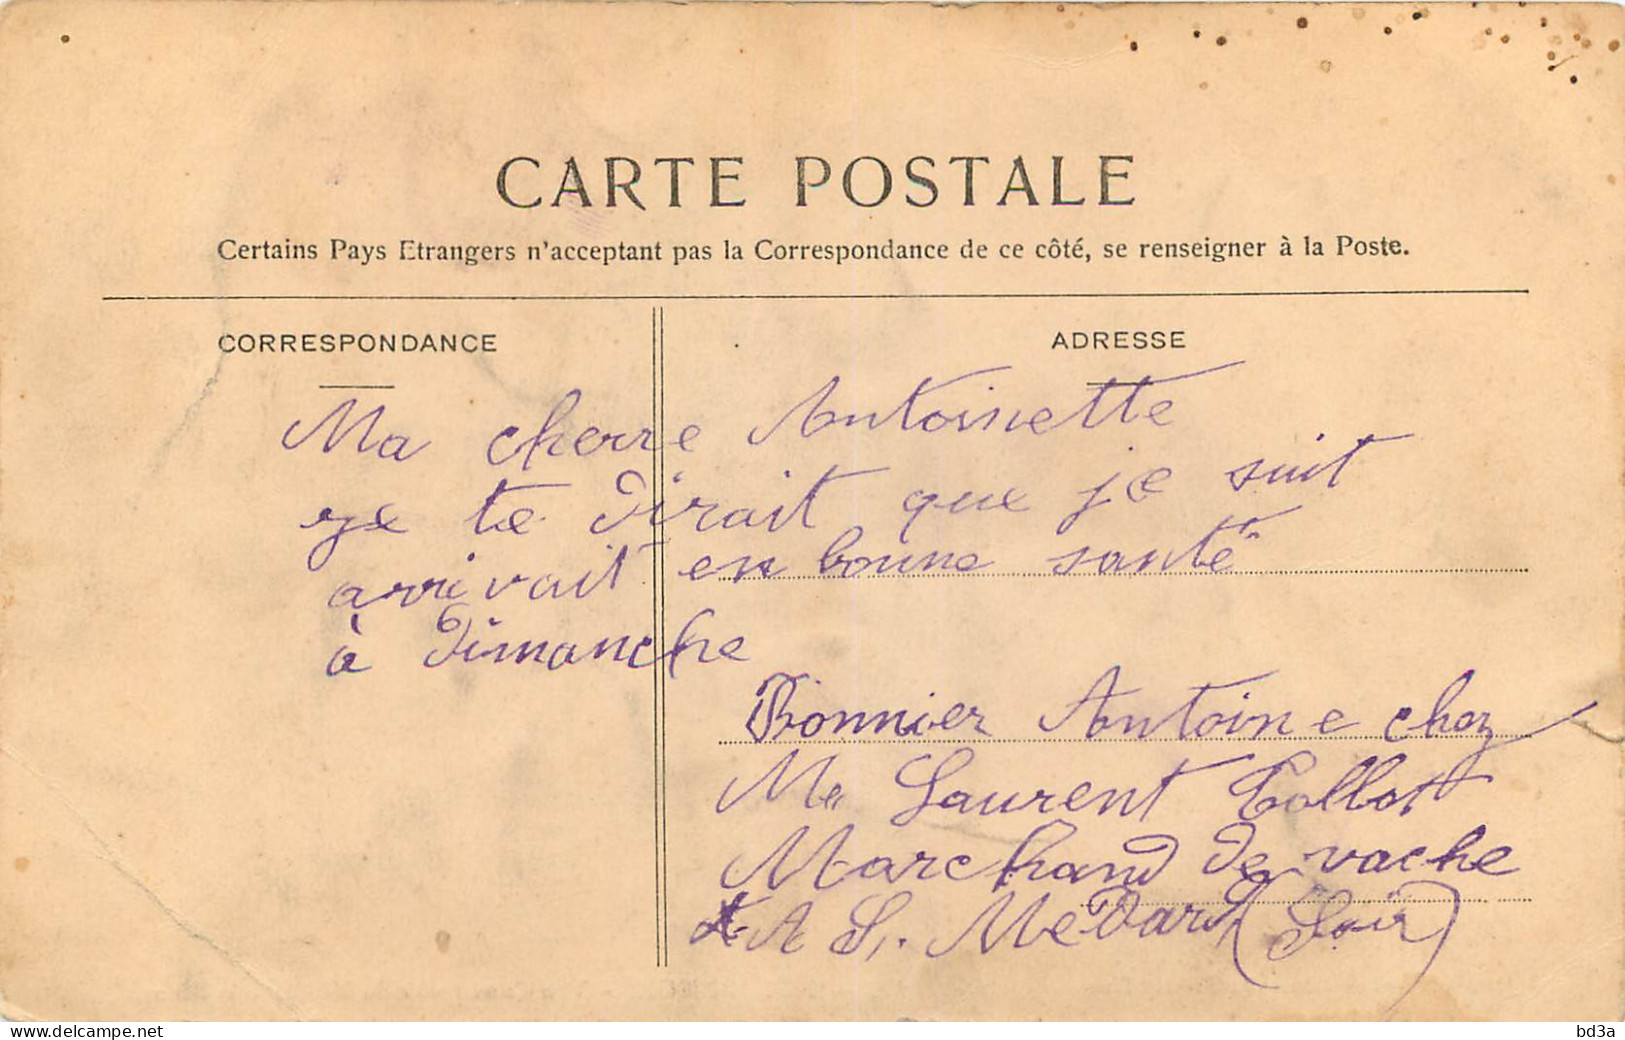 CARTE POSTALE
Certains Pays Etrangers n'acceptant pas la Correspondance de ce côté, se renseigner à la Poste.
CORRESPONDANCE
ADRESSE
Ma cherre Antoinette
ye te dirait que je suit
arrivait en bonne santé
à dimanche
Bonnier Antoine chez
Mr Laurent Collot
Marchand de vache
A St. Medard (Loir)
www.delcampe.net
bd3a